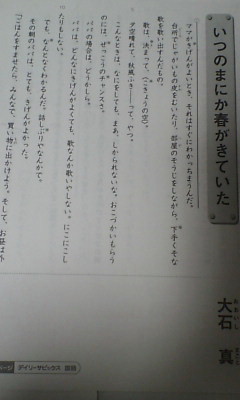 いつのまにか春がきていた
大石 真
おおいし
まこと
ママがきげんがよいとき、それはすぐにわかっちまうんだ。
台所でじゃがいもの皮をむいたり、部屋のそうじをしながら、下手くそな
歌を歌い出すんだもの。
歌は、決まって「こきょうの空」。
夕空晴れて、秋風ふき――って、やつ。
こんなときは、なにをしても、まあ、しかられないな。おこづかいもらう
のには、ぜっこうのチャンスさ。
パパの場合は、どうかしら。
パパは、どんなにきげんがよくても、歌なんか歌いやしない。にこにこし
たりもしない。
でも、なんとなくわかるんだ。話しぶりやなんかで。
その朝のパパは、とても、きげんがよかった。
「ごはんをすませたら、みんなで、買い物に出かけよう。そして、お昼は外
ページ
デイリーサピックス 国語